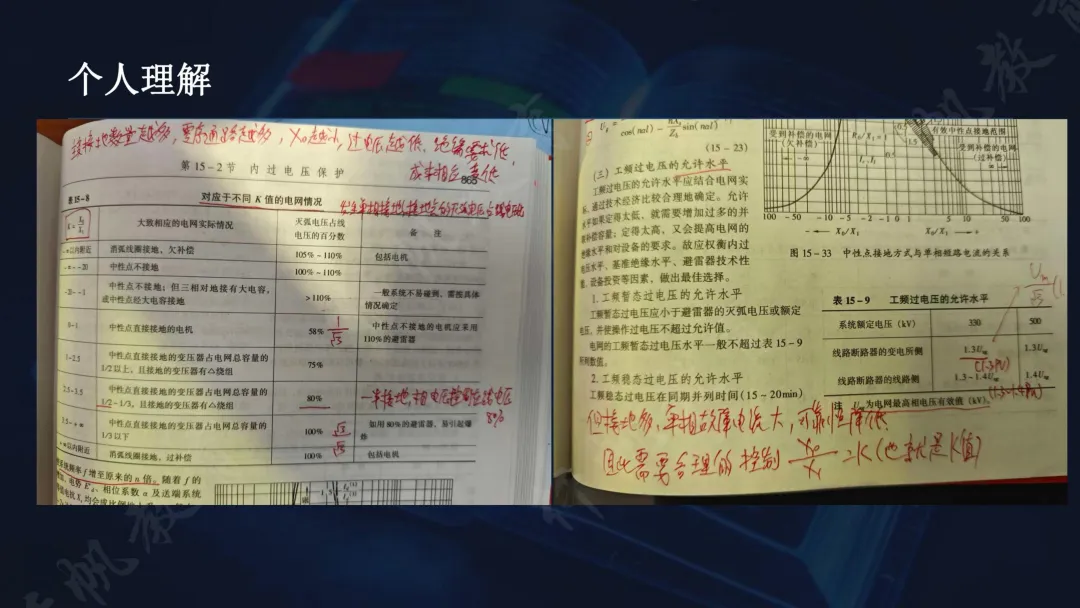 个人理解
连接地数量越多，零序通路越多，X₀越小，过电压越低，绝缘要求低，
成本相应变低
第 15-2 节 内过电压保护
865
表15-8
对应于不同 K 值的电网情况
大致相应的电网实际情况
灭弧电压占线
电压的百分数
备 注
消弧线圈接地、欠补偿
105%~110%
包括电机
中性点不接地
100%~110%
中性点不接地；但三相对地接有大电容，
或中性点经大电容接地
>110%
一般系统不易碰到，需按具体
情况确定
0~1
中性点直接接地的电机
58%
1/√3
中性点不接地的电机应采用
110%的避雷器
1~2.5
中性点直接接地的变压器占电网总容量的
1/2以上，且接地的变压器有△绕组
75%
2.5~3.5
中性点直接接地的变压器占电网总容量的
1/2~1/3，且接地的变压器有△绕组
80%
80%
中性点直接接地的变压器占电网总容量的
1/3以下
100%
如用80%的避雷器，易引起爆
炸
消弧线圈接地、过补偿
100%
包括电机
频率 f 增至原来的 n 倍。随着 f 的
相位系数 α 及送端系统
(15-23)
（三）工频过电压的允许水平
工频过电压的允许水平应结合电网实
际，通过技术经济比较合理地确定。允许
水平如果定得太低，就需要增加过多的并
联补偿容量；定得太高，又会提高电网的
绝缘水平和对设备的要求。故应权衡内过
电压水平、基准绝缘水平、避雷器技术性
能、设备投资等因素，做出最佳选择。
1. 工频暂态过电压的允许水平
工频暂态过电压应小于避雷器的灭弧电压或额定
电压，并使操作过电压不超过允许值。
电网的工频暂态过电压水平一般不超过表 15-9
所列数值。
2. 工频稳态过电压的允许水平
工频稳态过电压在同期并列时间(15~20min)
受到补偿的电网
(欠补偿)
R₀/X₁=1
有效中性点接地范围
受到补偿的电网
(过补偿)
100 50 20 10 5
10 20 50 100
← -X₀/X₁
X₀/X₁ →
图 15-33 中性点接地方式与单相短路电流的关系
表 15-9 工频过电压的允许水平
系统额定电压（kV） 330 500
线路断路器的变电所侧 1.3Uₓg 1.3U
线路断路器的线路侧 1.3~1.4Uₓg 1.4U
注 为电网最高相电压有效值（kV）。
但接地多，单相故障电流大，可靠性降低
因此需要合理的控制 X₀/X₁ =K（也就是K值）